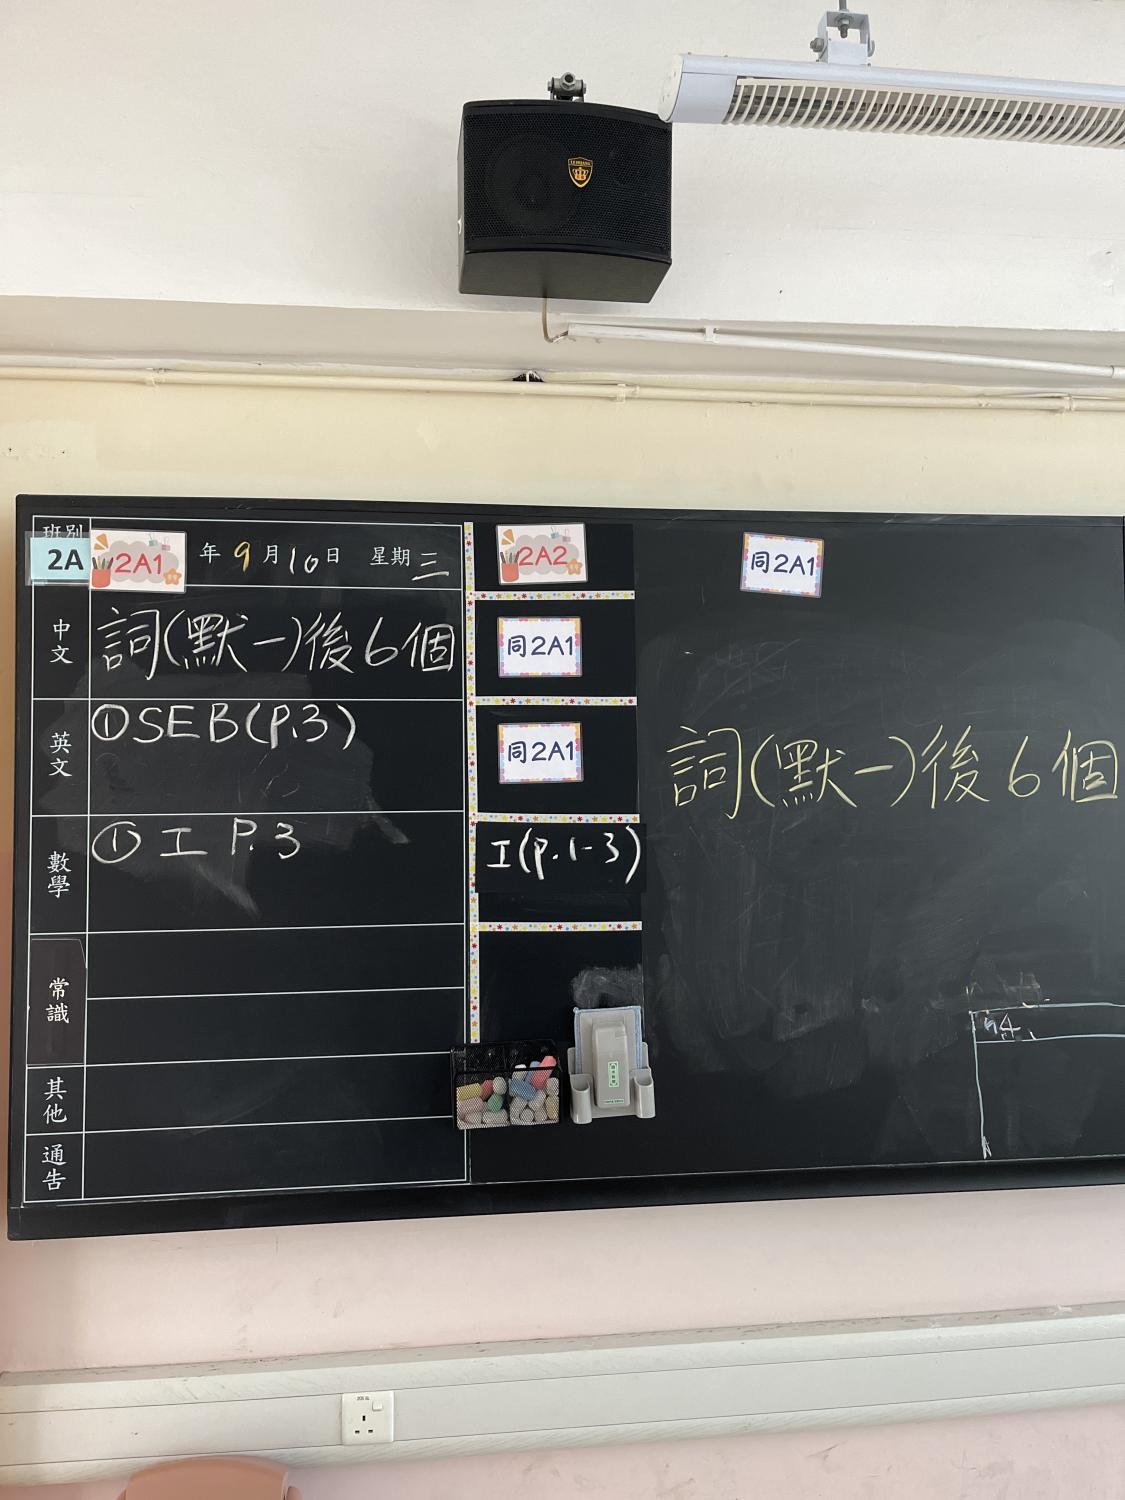 班別
2A
2A1
年9月10日 星期三
中文
詞(默一)後6個
英文
①SEB(P.3)
數學
①工 P.3
常識
其他
通告
2A2
同2A1
同2A1
工(p.1-3)
同2A1
詞(默一)後6個